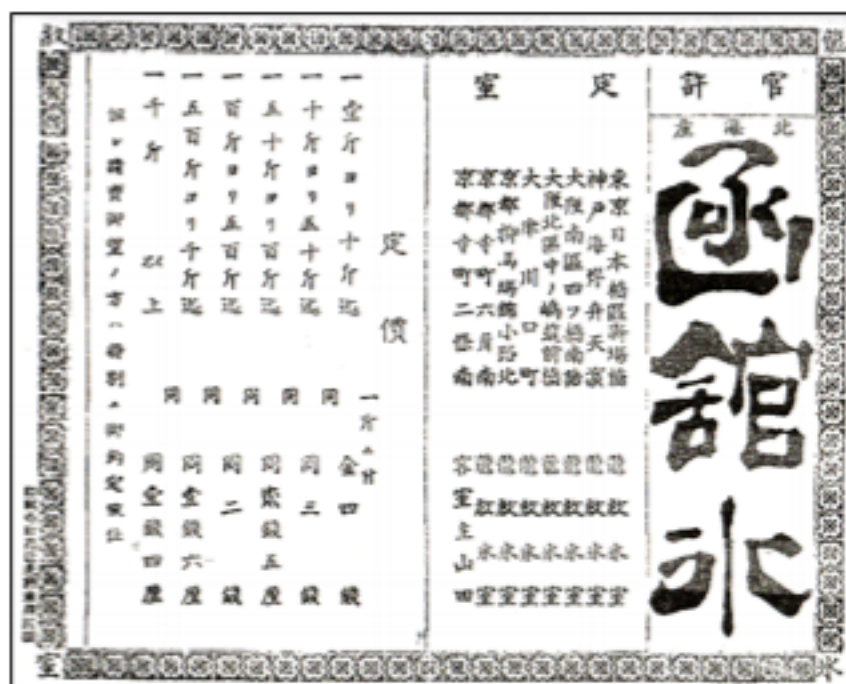 官許
北海産
函館氷
定室
東京日本橋區新場橋 龍紋氷室
神戸海岸弁天濱 龍紋氷室
大阪南區四ツ橋南詰 龍紋氷室
大阪北區中ノ嶋筑前橋 龍紋氷室
大津川口町 龍紋氷室
京都柳馬場錦小路北 龍紋氷室
京都寺町六角南 龍紋氷室
京都寺町二條南 室主山田
定價
一斤ニ付
一壹斤ヨリ十斤迄 金四錢
一十斤ヨリ五十斤迄 同 同三錢
一五十斤ヨリ百斤迄 同 同貳錢五厘
一百斤ヨリ五百斤迄 同 同二錢
一五百斤ヨリ千斤迄 同 同壹錢六厘
一千斤以上 同 同壹錢四厘
但シ請賣御望ノ方ハ格別ニ御約定仕
龍
紋
氷
室